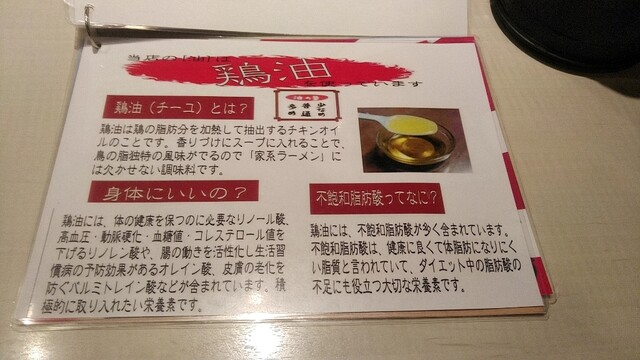 当店の
鶏油
います
鶏油（チーユ）とは？
油の量
多め 普通 少なめ
鶏油は鶏の脂肪分を加熱して抽出するチキンオイ
ルのことです。香りづけにスープに入れることで、
鳥の脂独特の風味がでるので「家系ラーメン」に
は欠かせない調味料です。
身体にいいの？
鶏油には、体の健康を保つのに必要なリノール酸、
高血圧・動脈硬化・血糖値・コレステロール値を
下げるリノレン酸や、腸の働きを活性化し生活習
慣病の予防効果があるオレイン酸、皮膚の老化を
防ぐパルミトレイン酸などが含まれています。積
極的に取り入れたい栄養素です。
不飽和脂肪酸ってなに？
鶏油には、不飽和脂肪酸が多く含まれています。
不飽和脂肪酸は、健康に良くて体脂肪になりにく
い脂質と言われていて、ダイエット中の脂肪酸の
不足にも役立つ大切な栄養素です。